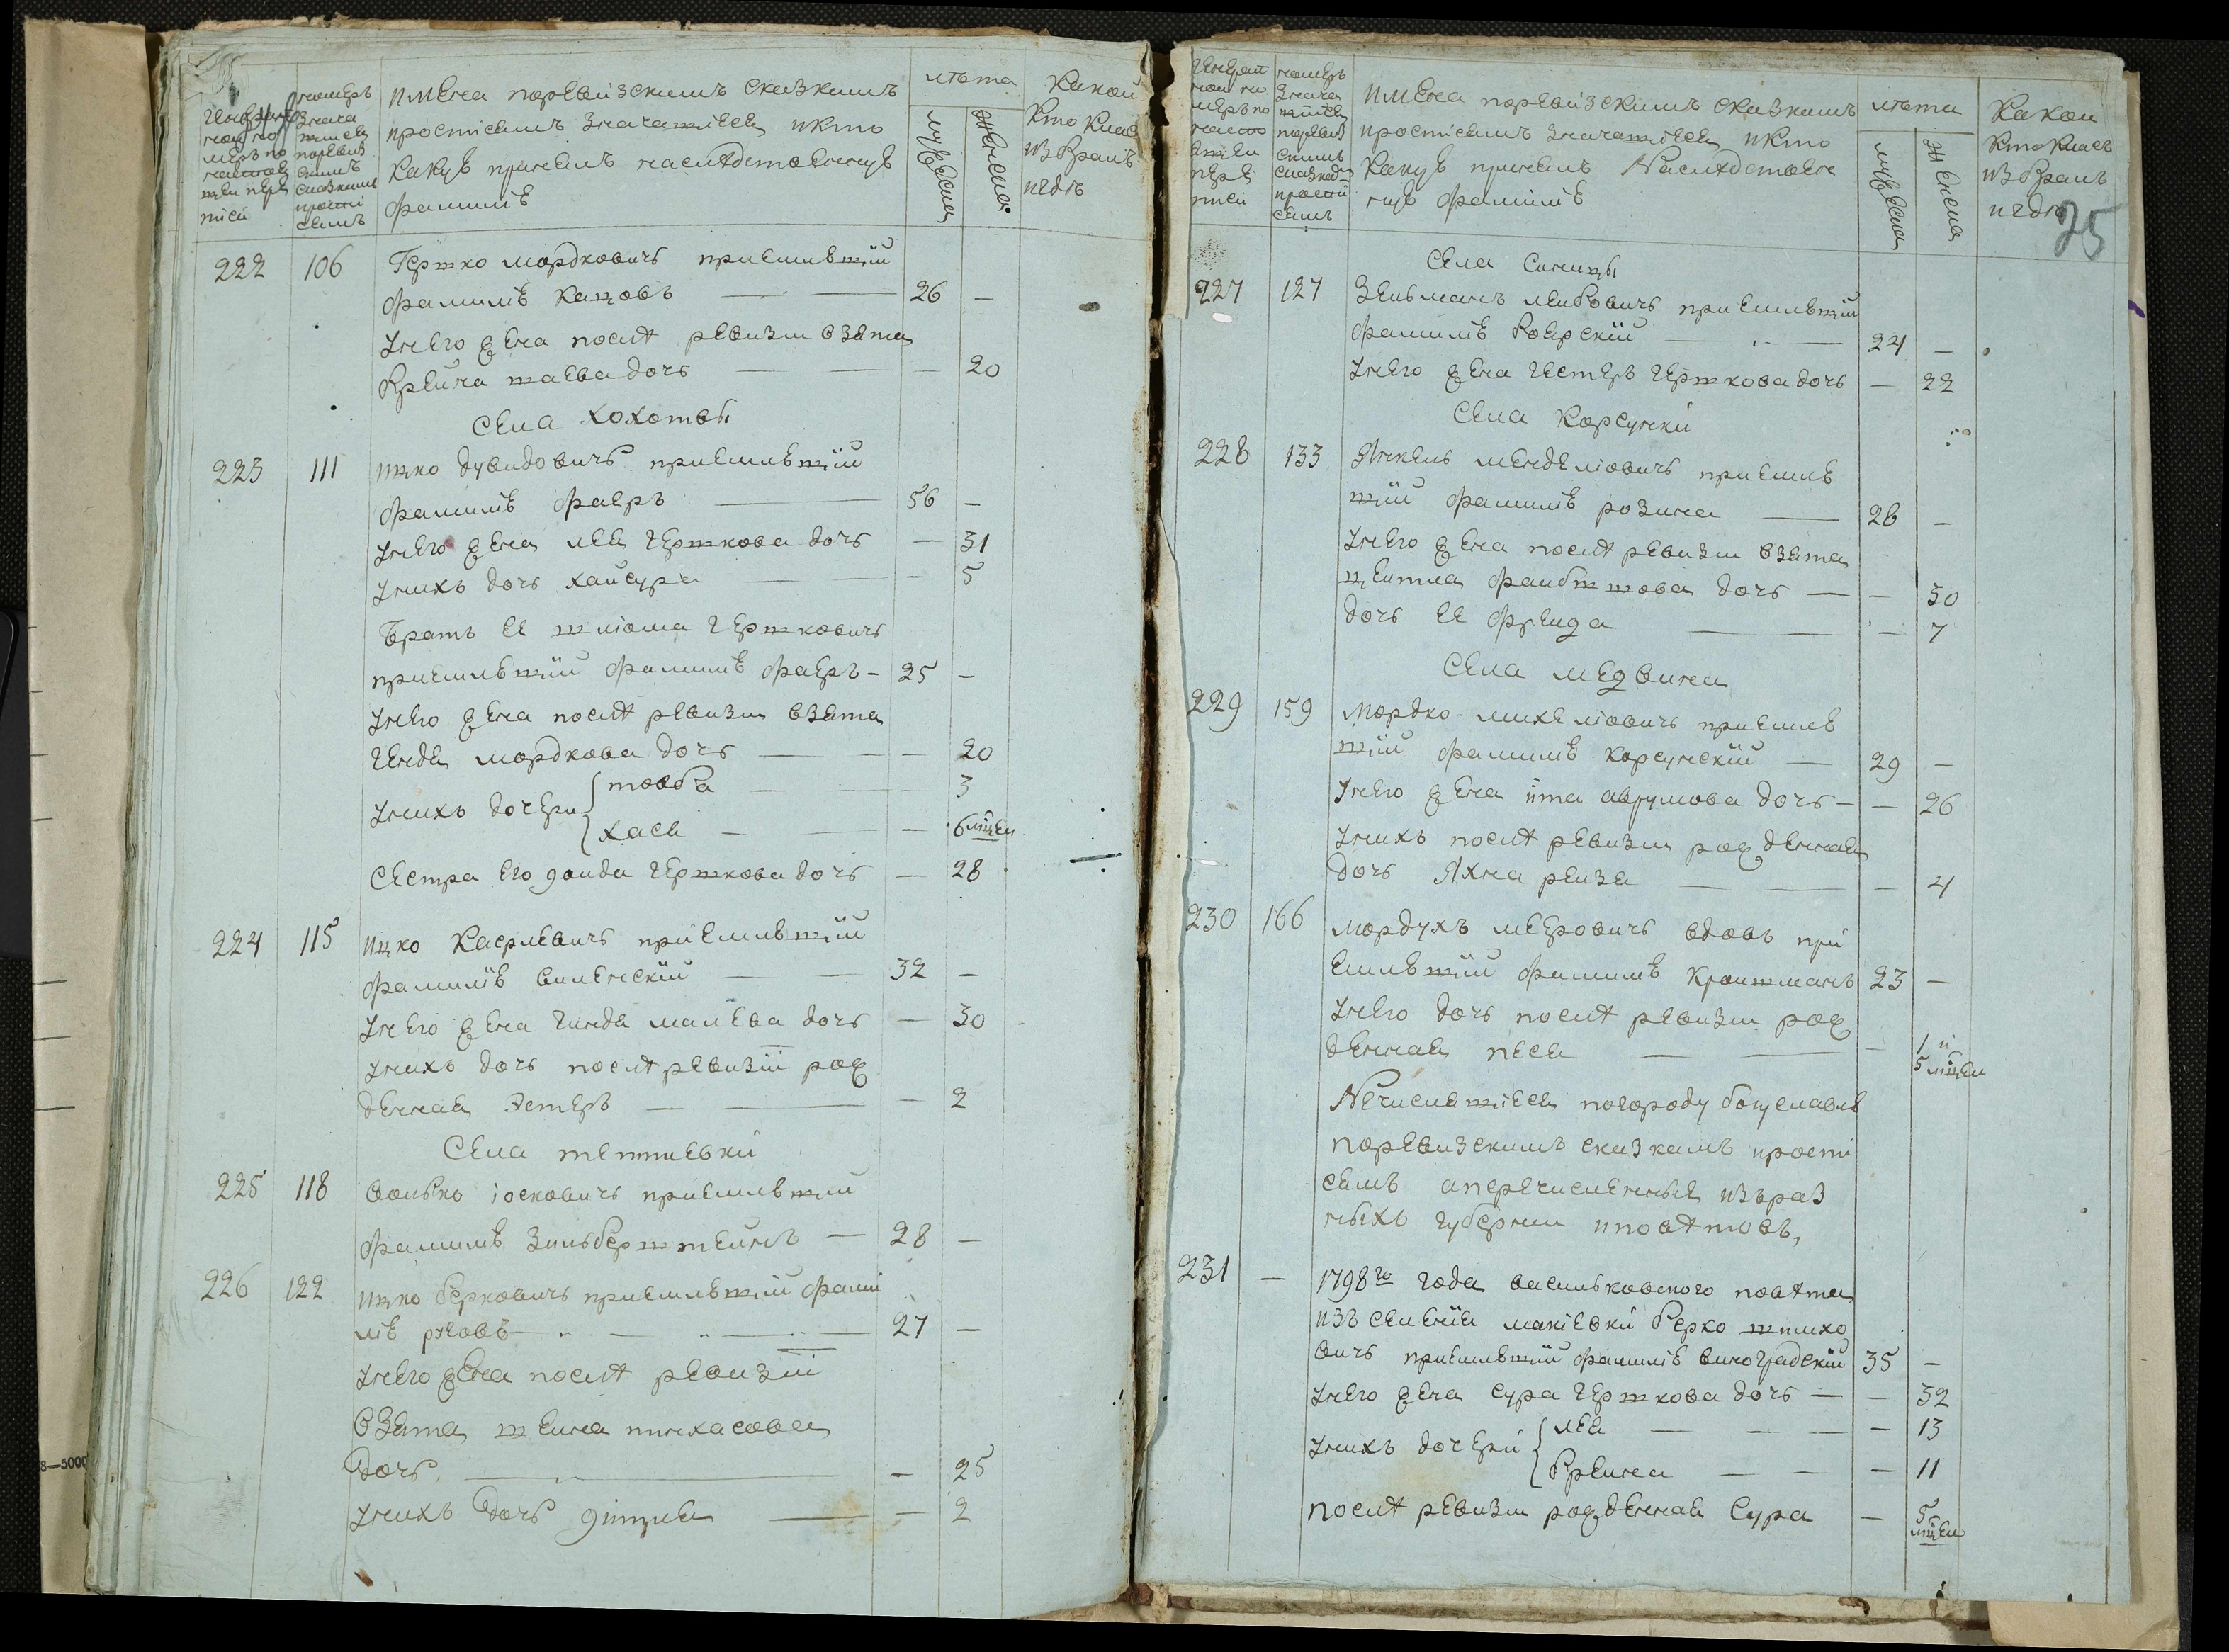 номеръ
Знача
щиеся
поревиз
скимъ
сказкамъ
прости
самъ
имена поревизскимъ сказкамъ
простисамъ значащиеся икто
какую принялъ наслѣдственную
фамилию
лѣта
мужеска
женска
какой
кто класъ
избралъ
и гдѣ
222 106 Гершко мордковичъ приемлющий
фамилию кацовъ 26 —
унего жена послѣ ревизии взята
Брейна шаева дочь — 20
села хохотвы
223 111 ицко дувидовичъ приемлющий
фамилию фаеръ 56 —
унего жена лея гершкова дочь — 31
унихъ дочь хайсура — 5
братъ ея шлиома гершковичъ
приемлющий фамилию фаеръ — 25 —
унего жена послѣ ревизии взята
генда мордкова дочь — 20
унихъ дочери { товба — 3
хася — 6 мцеи
сестра его донда гершкова дочь — 28
224 115 ицко касрлевичъ приемлющий
фамилию виленский 32 —
унего жена гинда малева дочь — 30
унихъ дочь послѣ ревизии рож
денная эстеръ — 2
села тептиевки
225 118 волько иосковичъ приемлющий
фамилию зильберштейнъ — 28 —
226 122 ицко берковичъ приемлющий фами
лию рзовъ 27 —
унего жена послѣ ревизии
взята шейна пинхасова
дочь — 25
унихъ дочь — 2
Генерал
ной но
меръ по
настоя
щей пере
писи
номеръ
знача
щийся
поревиз
скимъ
сказкамъ
прости
самъ
имена поревизскимъ сказкамъ
простисамъ значащиеся икто
какую принялъ Наслѣдствен
ную фамилию
лѣта
мужеска
женска
какой
кто класъ
избралъ
и гдѣ
25
села синицы
227 127 Зельманъ лейбовичъ приемлющий
фамилию боярский 24 —
унего жена гестеръ гершкова дочь — 22
села корсунки
228 133 Янкель менделиовичъ приемлю
щий фамилию розина 28 —
унего жена послѣ ревизии взята
цейтля файбишова дочь — 30
дочь ея фрейда — 7
села медвина
229 159 мордко михелиовичъ приемлю
щий фамилию корсунский — 29 —
унего жена ита аврумова дочь — 26
унихъ послѣ ревизии рожденная
дочь Яхна рейза — 4
230 166 мордухъ мееровичъ вдовъ при
емлющий фамилию кройтманъ 23 —
унего дочь послѣ ревизии рож
денная песя — 1 и
5 мцеи
Не числящиеся погороду богуславлю
поревизскимъ сказкамъ прости
самъ а перечисленные изъраз
ныхъ губерний и повѣтовъ,
231 — 1798го года васильковского повѣта
изъ селения макиевки берко шпихо
вичъ приемлющий фамилию виноградский 35 —
унего жена сура гершкова дочь — — 32
унихъ дочери { лея — 13
брейна — 11
послѣ ревизии рожденная сура — 5
мцеи